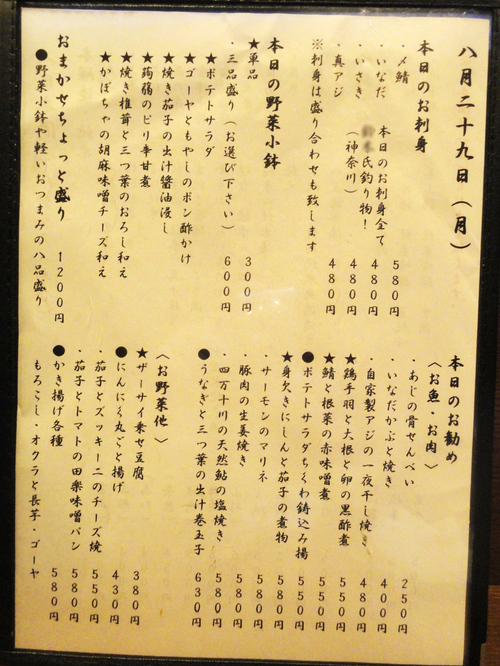 八月二十九日（月）
本日のお刺身
・〆鯖 580円
・いなだ 480円
・いさき 480円
・真アジ 480円
本日のお刺身全て
氏釣り物！
（神奈川）
※刺身は盛り合わせも致します
本日の野菜小鉢
★単品 300円
・三品盛り（お選び下さい） 600円
★ポテトサラダ
★ゴーヤともやしのポン酢かけ
★焼き茄子の出汁醤油浸し
★蒟蒻のピリ辛甘煮
★焼き椎茸と三つ葉のおろし和え
★かぼちゃの胡麻味噌チーズ和え
おまかせちょっと盛り 1200円
●野菜小鉢や軽いおつまみの八品盛り
本日のお勧め
〈お魚・お肉〉
・あじの骨せんべい 250円
・いなだかぶと焼き 400円
・自家製アジの一夜干し焼き 480円
★鶏手羽と大根と卵の黒酢煮 550円
★鯖と根菜の赤味噌煮 550円
●ポテトサラダちくわ鋳込み揚 550円
★身欠きにしんと茄子の煮物 580円
・サーモンのマリネ 550円
・豚肉の生姜焼 580円
・四万十川の天然鮎の塩焼き 580円
●うなぎと三つ葉の出汁巻玉子 630円
〈お野菜他〉
★ザーサイ乗せ豆腐 380円
●にんにく丸ごと揚げ 430円
・茄子とズッキーニのチーズ焼 550円
・茄子とトマトの田楽味噌パン 580円
●かき揚げ各種 580円
もろこし・オクラと長芋・ゴーヤ